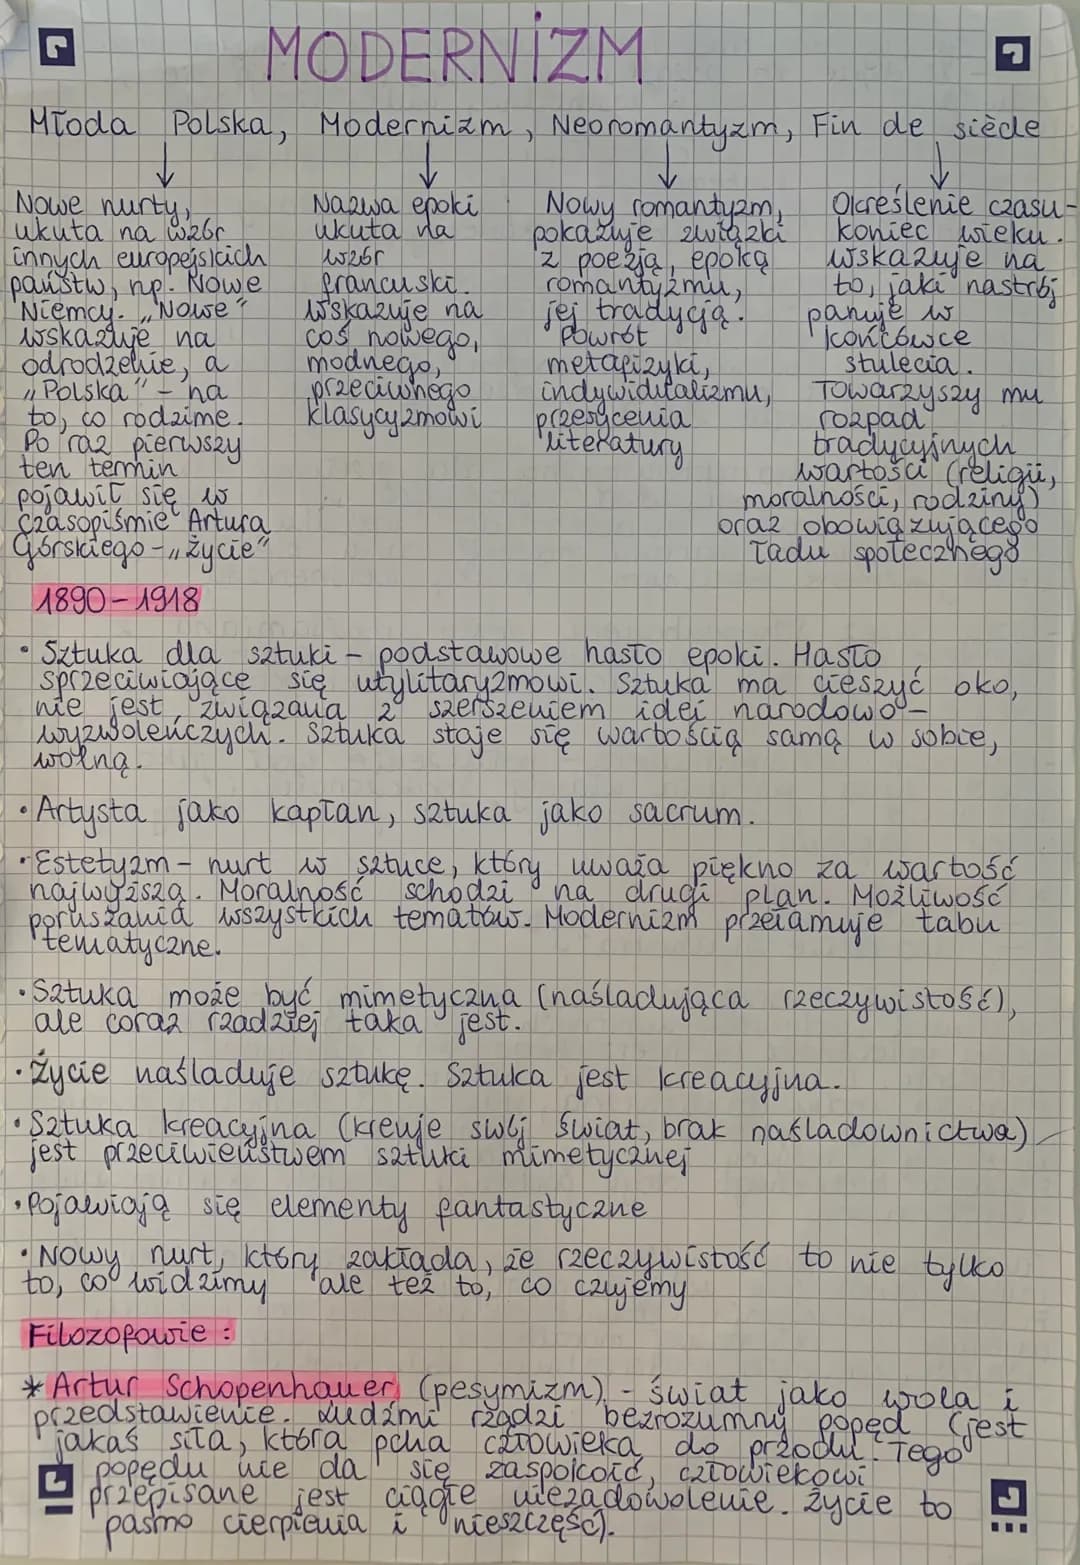 MODERNIZM
Młoda Polska, Modernizm, Neoromantyzm, Fin de siècle
Nowe nurty,
ukuta na wzór
innych europejskich
państw, np. Nowe
Niemcy. „Nowe"
wskazuje na
odrodzenie, a
„Polska" - na
to, co rodzime.
Po raz pierwszy
ten termin
pojawił się w
czasopiśmie Artura
Górskiego - „Życie"
Nazwa epoki
ukuta na
wzór
francuski.
Wskazuje na
coś nowego,
modnego,
przeciwnego
klasycyzmowi
Nowy romantyzm,
pokazuje związki
z poezją, epoką
romantyzmu,
jej tradycją.
Powrót
metafizyki,
indywidualizmu,
przesycenia
literatury
Określenie czasu-
koniec wieku.
Wskazuje na
to, jaki nastrój
panuje w
końcówce
stulecia.
Towarzyszy mu
rozpad
tradycyjnych
wartości (religii,
moralności, rodziny)
oraz obowiązującego
ładu społecznego
1890-1918
• Sztuka dla sztuki - podstawowe hasło epoki. Hasło
sprzeciwiające się utylitaryzmowi. Sztuka ma cieszyć oko,
nie jest związana z szerszeniem idei narodowo-
wyzwoleńczych. Sztuka staje się wartością samą w sobie,
wolną.
• Artysta jako kapłan, sztuka jako sacrum.
• Estetyzm - nurt w sztuce, który uważa piękno za wartość
najwyższą. Moralność schodzi na drugi plan. Możliwość
poruszania wszystkich tematów. Modernizm przełamuje tabu
tematyczne.
• Sztuka może być mimetyczna (naśladująca rzeczywistość),
ale coraz rzadziej taka jest.
• Życie naśladuje sztukę. Sztuka jest kreacyjna.
• Sztuka kreacyjna (kreuje swój świat, brak naśladownictwa)
jest przeciwieństwem sztuki mimetycznej
• Pojawiają się elementy fantastyczne
• Nowy nurt, który zakłada, że rzeczywistość to nie tylko
to, co widzimy ale też to, co czujemy
Filozofowie:
* Artur Schopenhauer (pesymizm) - świat jako wola i
przedstawienie. Ludźmi rządzi bezrozumny popęd (jest
jakaś siła, która pcha człowieka do przodu. Tego
popędu nie da się zaspokoić, człowiekowi
przepisane jest ciągłe niezadowolenie. Życie to
pasmo cierpienia i nieszczęść).